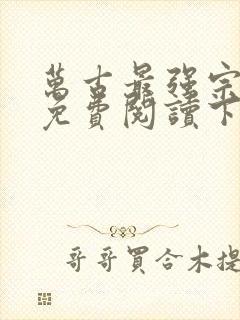 萬古最強宗
免費閱讀下
哥哥買合木提